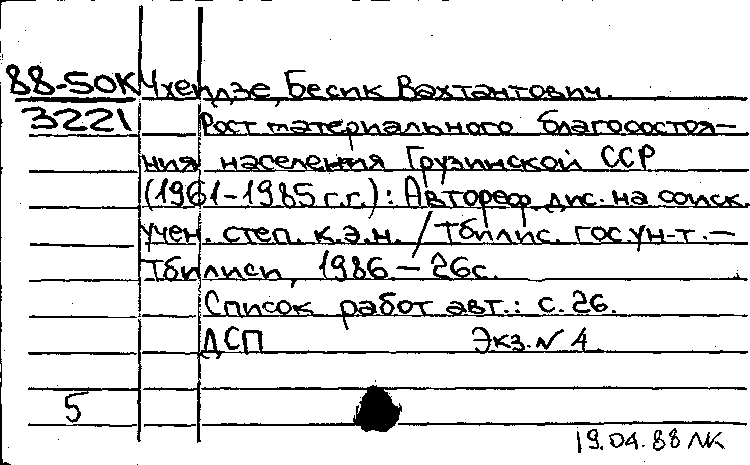 88-50К Чхеидзе, Бесик Вахтангович.
3221 Рост материального благосостоя-
ния населения Грузинской ССР
(1961-1985 г.г.): Автореф. дис. на соиск.
учен. степ. к.э.н. / Тбилис. гос. ун-т. –
Тбилиси, 1986 – 26с.
Список работ авт.: с. 26.
ДСП Экз. N 4
5
19.04.88 ЛК